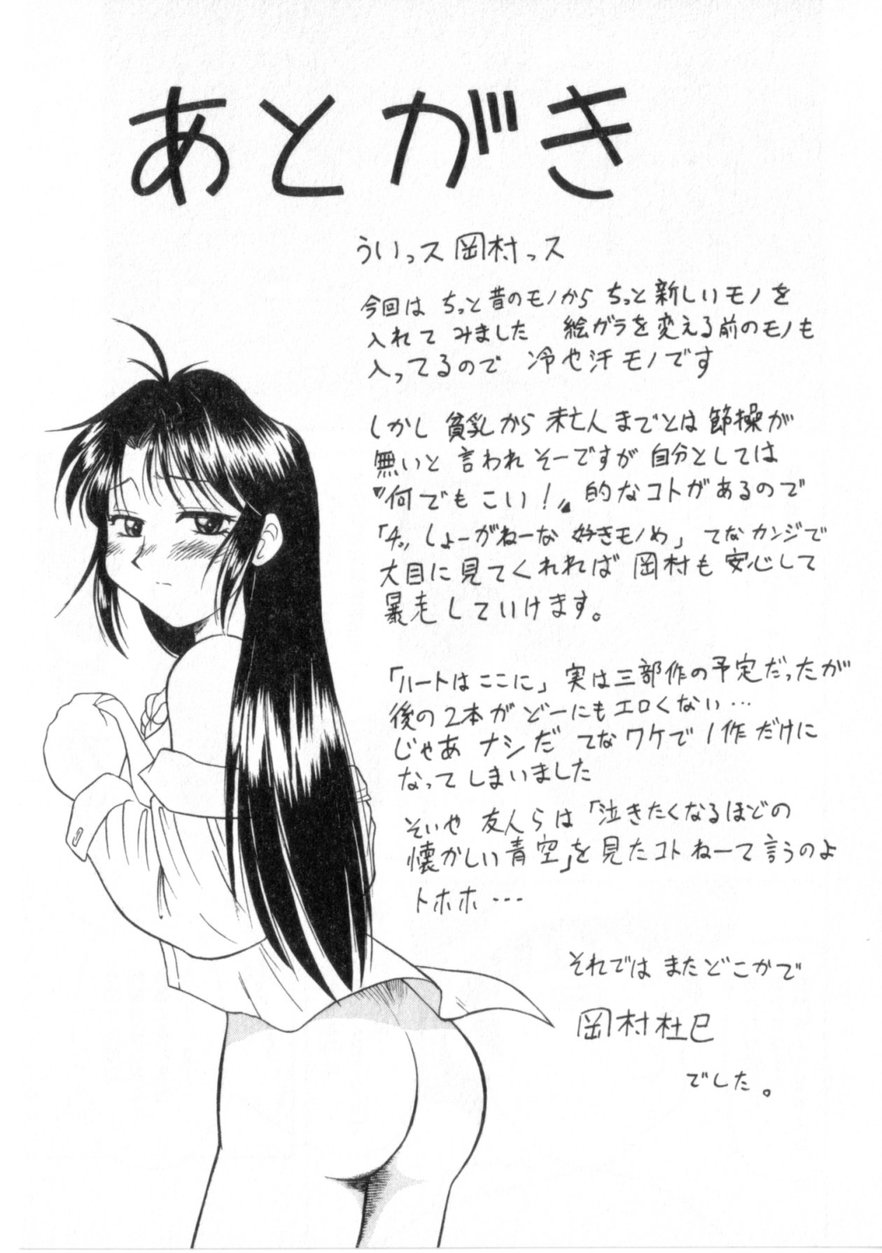 あとがき
ういっス 岡村っス
今回は ちっと昔のモノから ちっと新しいモノを
入れて みました 絵ガラを変える前のモノも
入ってるので 冷や汗モノです
しかし 貧乳から 未亡人までとは 節操が
無いと 言われそーですが 自分としては
〝何でもこい!〟的なコトがあるので
「チッ しょーがねーな 好きモノめ」てなカンジで
大目に見てくれれば 岡村も 安心して
暴走していけます。
「ハートはここに」実は三部作の予定だったが
後の2本がどーにもエロくない…
じゃあ ナシだ てなワケで 1作だけに
なってしまいました
そいや 友人らは「泣きたくなるほどの
懐かしい青空」を見たコトねーて言うのよ
トホホ…
それでは またどこかで
岡村杜巳
でした。